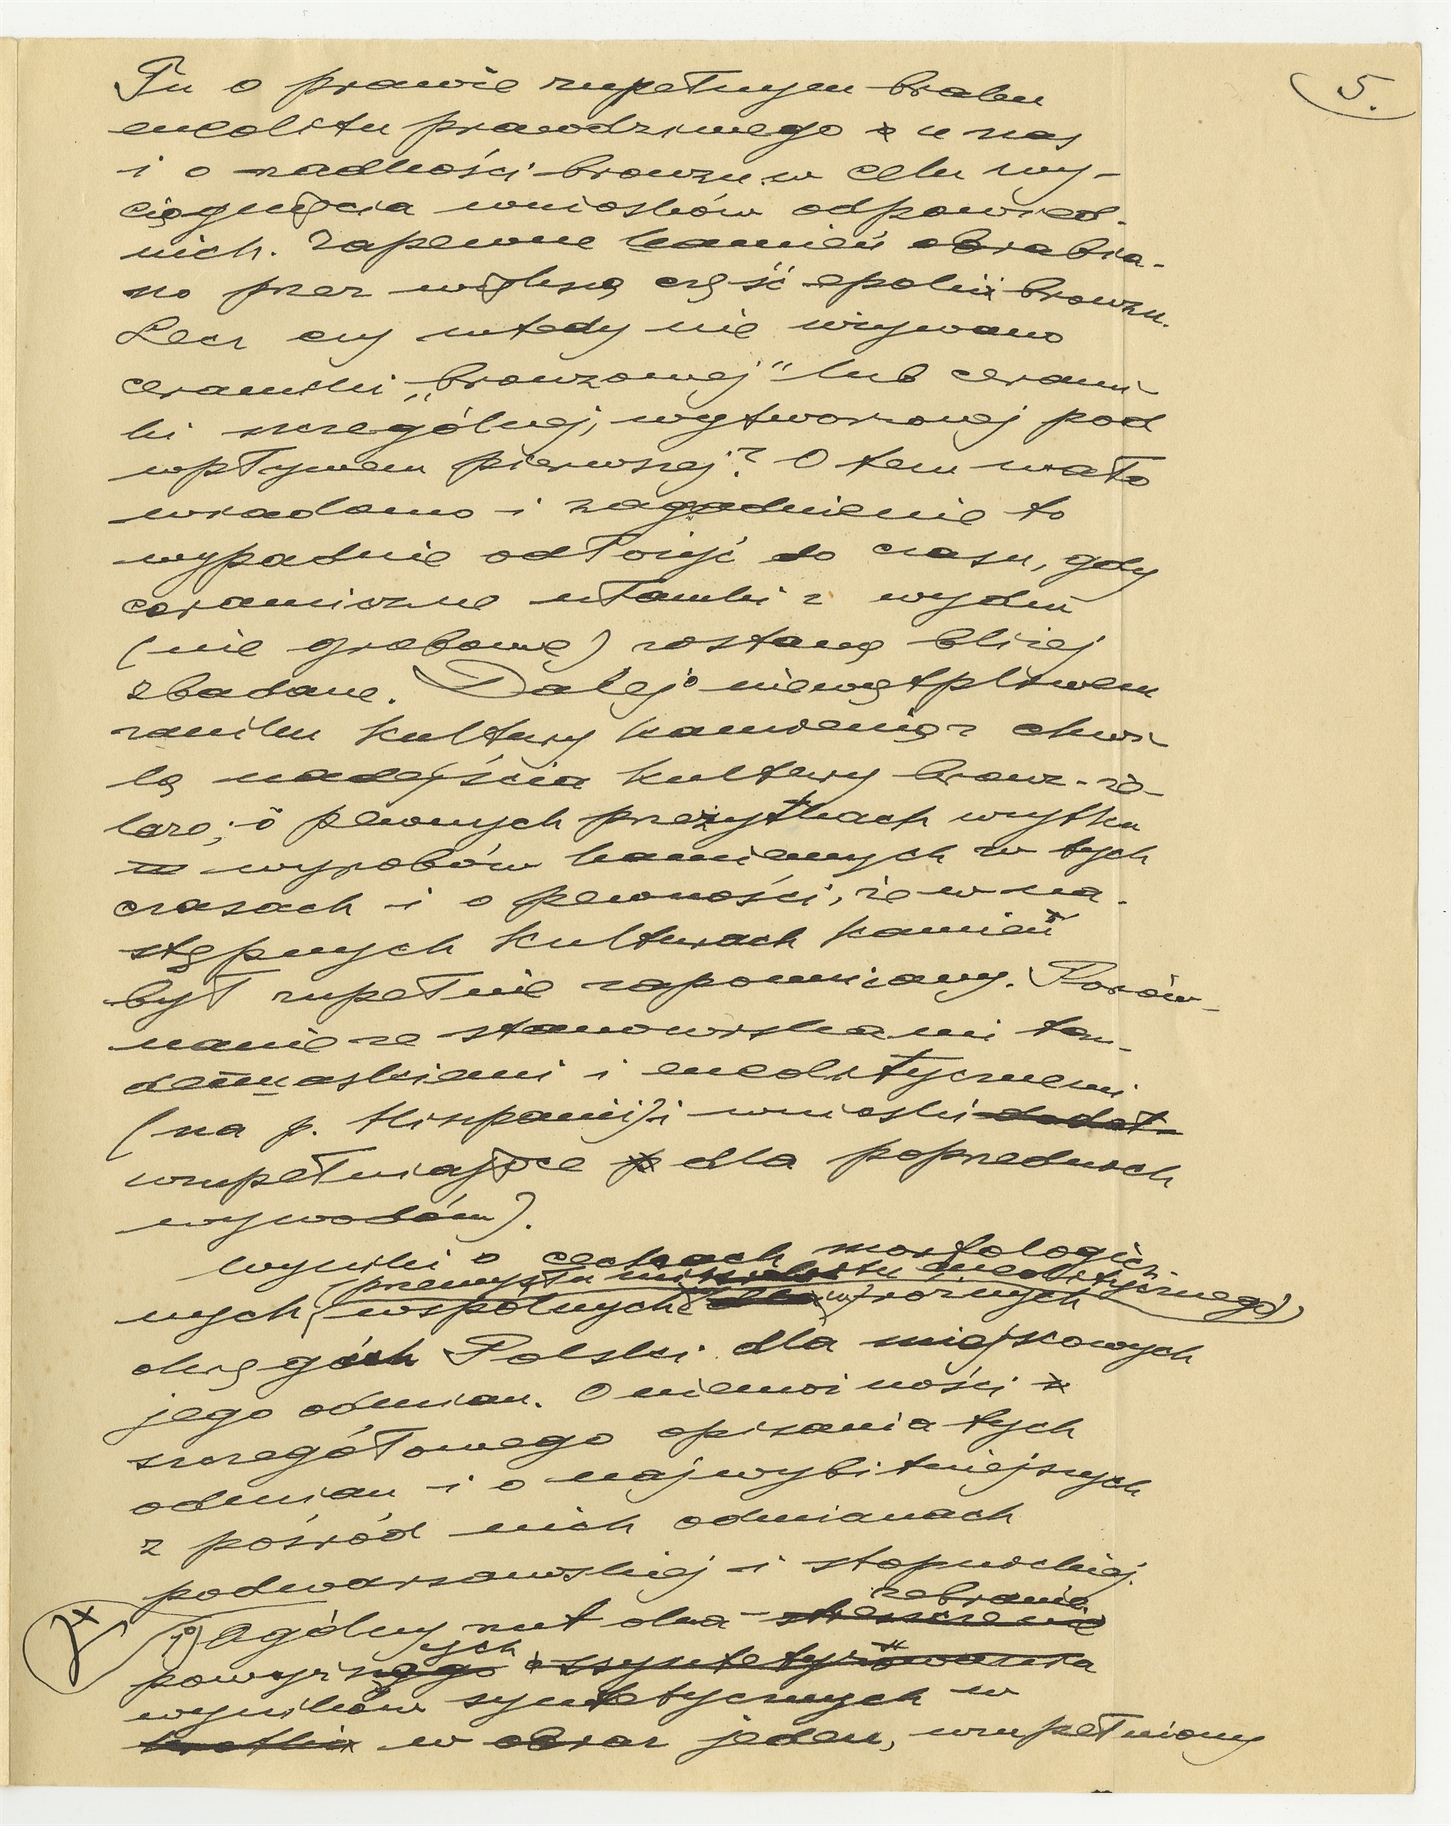 5.
Tu o prawie zupełnym braku
eneolitu prawdziwego u nas
i o rzadkości bronzu w celu wy-
ciągnięcia wniosków odpowied-
nich. Zapewne kamień obrabia-
no przez większą część epoki bronzu.
Lecz czy wtedy nie używano
ceramiki „bronzowej" lub cerami-
ki szczególnej, wytworzonej pod
wpływem pierwszej? O tem mało
wiadomo i zagadnienie to
wypadnie odłożyć do czasu, gdy
ceramiczne ułamki z wydm
(nie grobowe) zostaną bliżej
zbadane. Dalej o niewątpliwem
zaniku kultury kamienia z chwi-
lą nadejścia kultury bronz.-że-
laza; o pewnych przeżytkach użytku
wyrobów kamiennych w tych
czasach i o pewności, że w na-
stępnych kulturach kamień
był zupełnie zapomniany. Porów-
nanie ze stanowiskami tar-
denuaskiemi i eneolitycznemi
(na p. Hiszpanii) i wnioski dodat-
uzupełniające dla poprzednich
wywodów).
Wyniki o cechach morfologicz-
przemysłu mikrolitu eneolitycznego
nych, wspólnych dla w różnych
okręgach Polski dla miejscowych
jego odmian. O niemożności
szczegółowego opisania tych
odmian i o najwybitniejszych
z pośród nich odmianach
podwarszawskiej i stopnickiej.
zebranie
Ogólny rzut oka – streszczenie
ych
powyższego
wyników syntetycznych w
w obraz jeden, uzupełniony